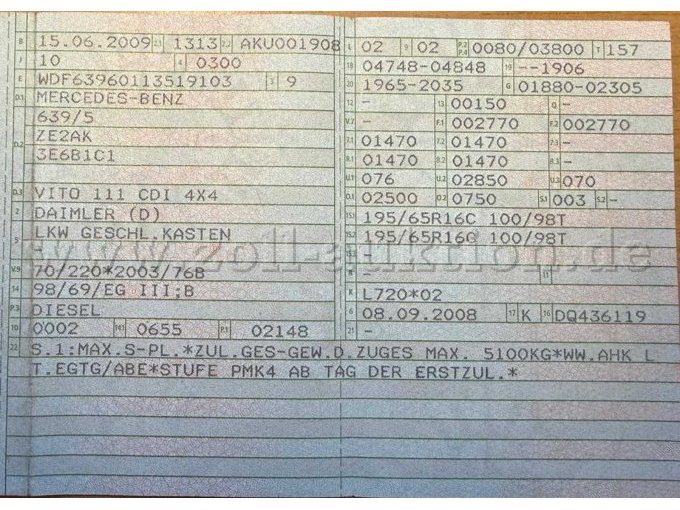 B 15.06.2009 2.1 1313 2.2 AKU001908
J 10 4 0300
E WDF63960113519103 3 9
D.1 MERCEDES-BENZ
639/5
D.2 ZE2AK
3E6B1C1
D.3 VITO 111 CDI 4X4
2 DAIMLER (D)
5 LKW GESCHL.KASTEN
-
V.9 70/220*2003/76B
14 98/69/EG III;B
P.3 DIESEL
10 0002 14.1 0655 P.1 02148
L 02 9 02 P.2 P.4 0080/03800 T 157
18 04748-04848 19 --1906
20 1965-2035 G 01880-02305
12 - 13 00150 Q -
V.7 - F.1 002770 F.2 002770
7.1 01470 7.2 01470 7.3 -
8.1 01470 8.2 01470 8.3 -
U.1 076 U.2 02850 U.3 070
O.1 02500 O.2 0750 S.1 003 S.2 -
15.1 195/65R16C 100/98T
15.2 195/65R16C 100/98T
15.3 -
R - 11
K L720*02
6 08.09.2008 17 K 16 DQ436119
21 -
22 S.1:MAX.S-PL.*ZUL.GES-GEW.D.ZUGES MAX. 5100KG*WW.AHK L
T.EGTG/ABE*STUFE PMK4 AB TAG DER ERSTZUL.*
www.zoll-auktion.de